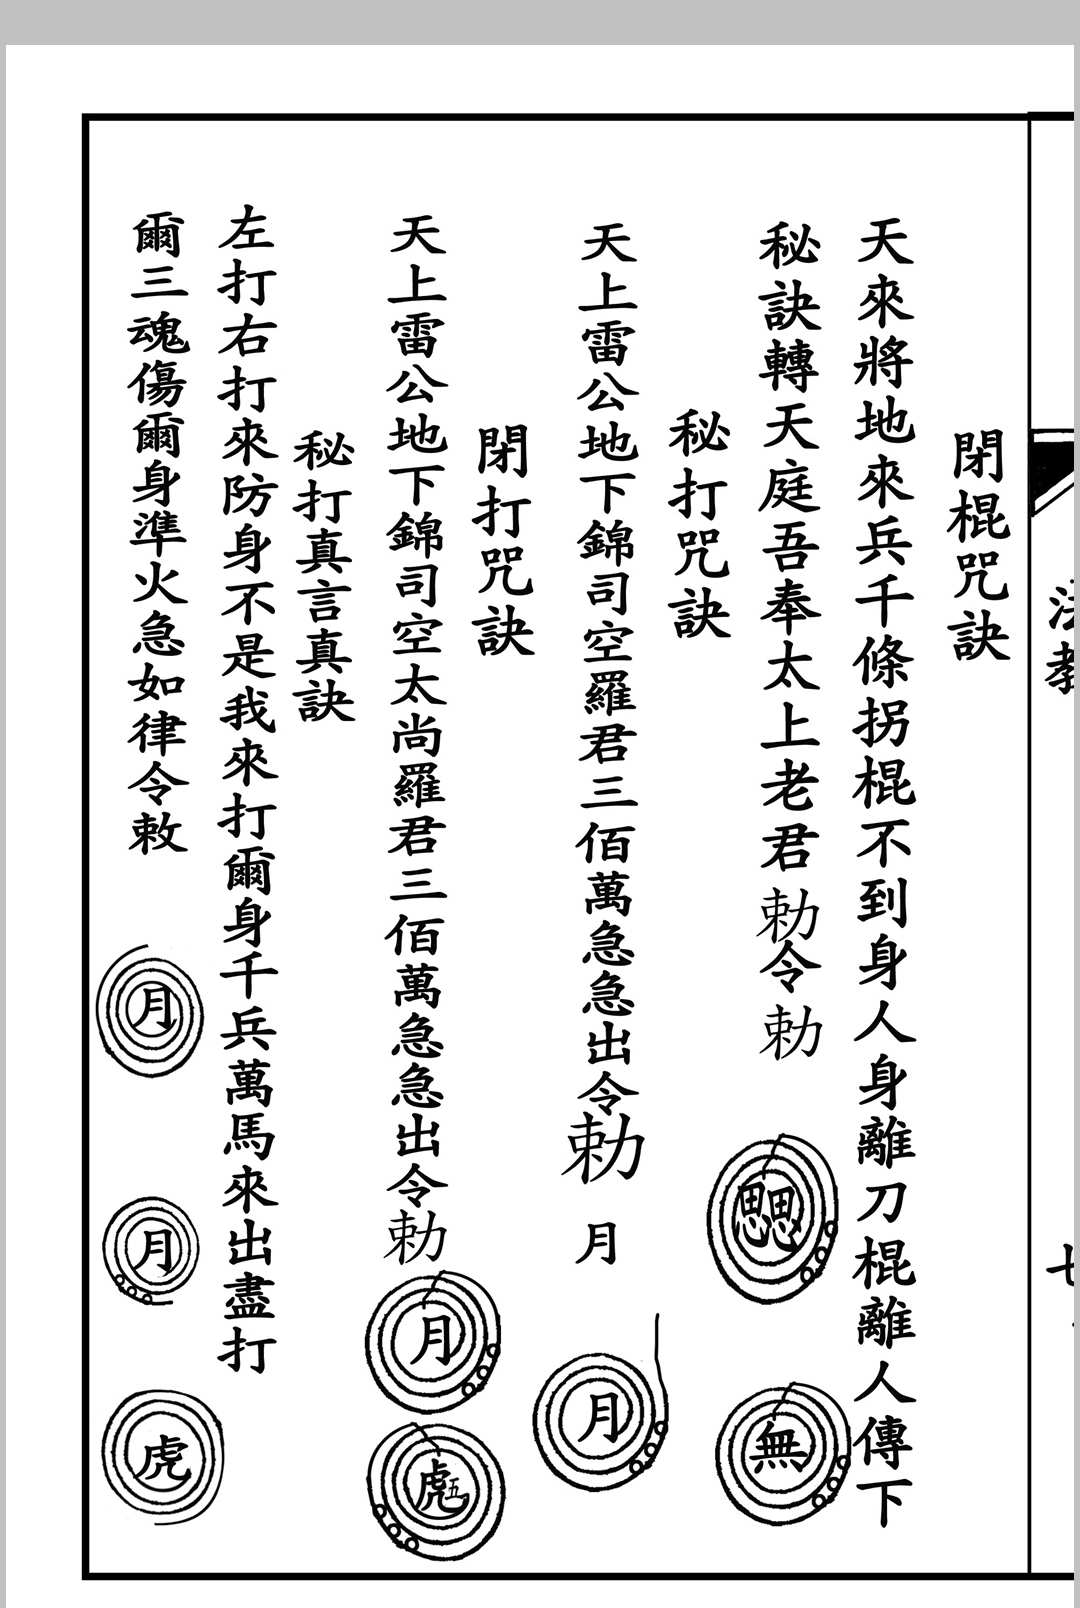 法教
閉棍咒訣
天來將地來兵千條拐棍不到身人身離刀棍離人傳下
秘訣轉天庭吾奉太上老君勅令勅
無
秘打咒訣
天上雷公地下錦司空羅君三佰萬急急出令勅月
月
閉打咒訣
天上雷公地下錦司空太尚羅君三佰萬急急出令勅
月
秘打真言真訣
左打右打來防身不是我來打爾身千兵萬馬來出盡打
爾三魂傷爾身準火急如律令敕
月
月
虎